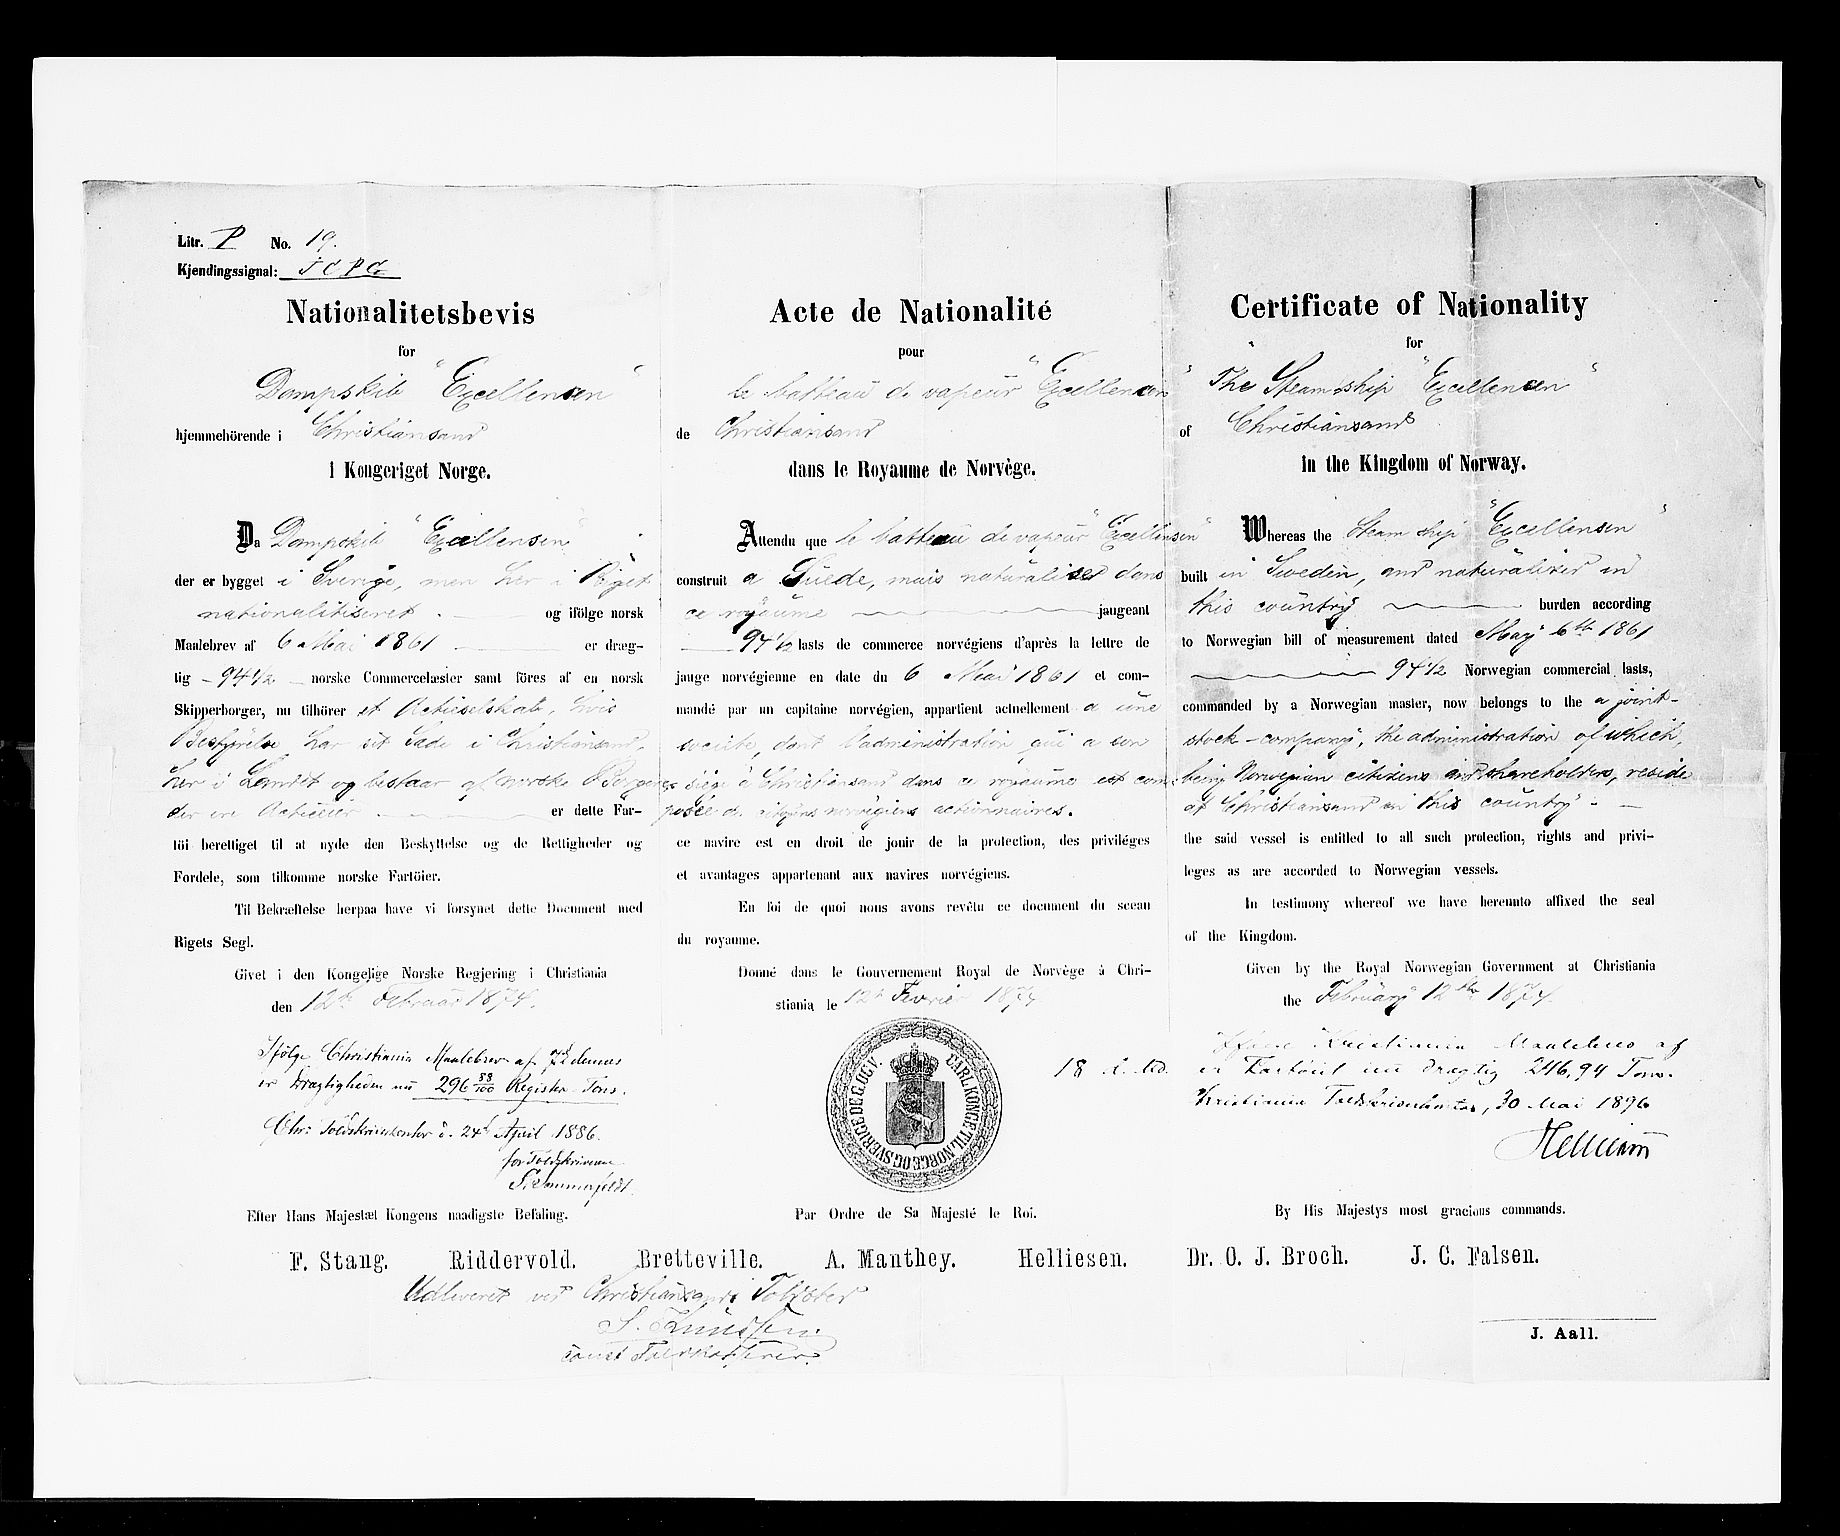 Litr. P No. 19.
Kjendingssignal: JCPG
Nationalitetsbevis
for
Dampskib "Excellensen"
hjemmehörende i Christiansand
i Kongeriget Norge.
Da Dampskib "Excellensen"
der er bygget i Sverige, men her i Riget
nationalitiseret. og ifölge norsk
Maalebrev af 6 Mai 1861 er dræg-
tig 94 1/2 norske Commercelæster samt föres af en norsk
Skipperborger, nu tilhörer et Actieselskab, hvis
Bestyrelse har sit Sæde i Christiansand,
her i Landet og bestaar af norske Borgere,
der ere Actieeier er dette Far-
töi berettiget til at nyde den Beskyttelse og de Rettigheder og
Fordele, som tilkomme norske Fartöier.
Til Bekræftelse herpaa have vi forsynet dette Document med
Rigets Segl.
Givet i den Kongelige Norske Regjering i Christiania
den 12te Februar 1874.
Ifölge Christiania Maalebrev af dennes
er Drægtigheden nu 296 88/100 Register Tons.
Chr: Toldskriverkontor d. 24de April 1886.
for Toldskriveren
S. Sommerfeldt.
Efter Hans Majestæt Kongens naadigste Befaling.
Acte de Nationalité
pour
le batteau de vapeur "Excellensen"
de Christiansand
dans le Royaume de Norvège.
Attendu que le batteau de vapeur "Excellensen"
construit a Suede, mais naturalisé dans
ce royaume jaugeant
94 1/2 lasts de commerce norvégiens d'après la lettre de
jauge norvégienne en date du 6 Mai 1861 et com-
mandé par un capitaine norvégien, appartient actuellement a une
societé, dont l'administration qui a son
siége à Christiansand dans ce royaume est com
posée de citoyens norvégiens actionnaires.
ce navire est en droit de jouir de la protection, des priviléges
et avantages appartenant aux navires norvégiens.
En foi de quoi nous avons revêtu ce document du sceau
du royaume.
Donné dans le Gouvernement Royal de Norvège à Chri-
stiania le 12e Fevrier 1874.
CARL KONGE TIL NORGE OG SVERIGE DE G. OG V.
Par Ordre de Sa Majesté le Roi.
Certificate of Nationality
for
"The Steamship "Excellensen"
of Christiansand
in the Kingdom of Norway.
Whereas the Steam ship "Excellensen"
built in Sweden, and naturalized in
this country burden according
to Norwegian bill of measurement dated May 6th 1861
94 1/2 Norwegian commercial lasts,
commanded by a Norwegian master, now belongs to the a joint-
stock-company, the administration of which,
being Norwegian citizens and shareholders, reside
at Christiansand in this country.
the said vessel is entitled to all such protection, rights and privi-
leges as are accorded to Norwegian vessels.
In testimony whereof we have hereunto affixed the seal
of the Kingdom.
Given by the Royal Norwegian Government at Christiania
the February 12th 1874.
Kristiania Maalebrev af
18 d. Md. er Fartöiet nu drægtig 246,94 Tons.
Kristiania Toldskriverkontor, 30 Mai 1896
By His Majestys most gracious commands.
F. Stang. Riddervold. Bretteville. A. Manthey. Helliesen. Dr. O. J. Broch. J. C. Falsen.
Udleveret ved Christiansands Toldsted
S. Knudsen
const Toldkasserer.
J. Aall.